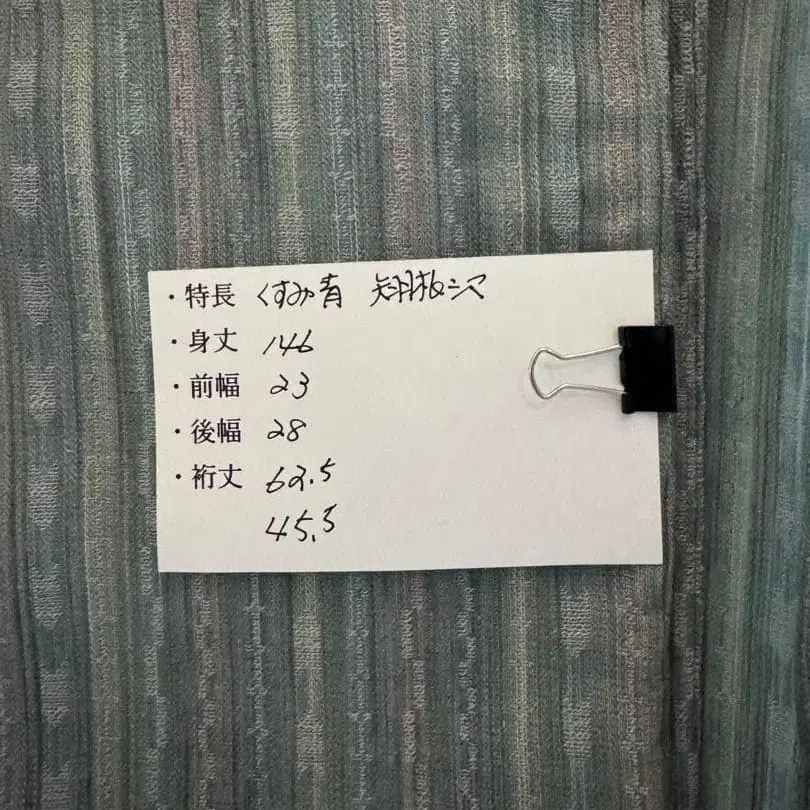 ・特長 くすみ青
・身丈 146
・前幅 23
・後幅 28
・裄丈 62.5
45.5